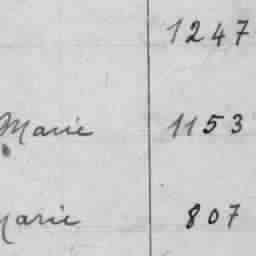 1247
Marie 1153
Marie 807